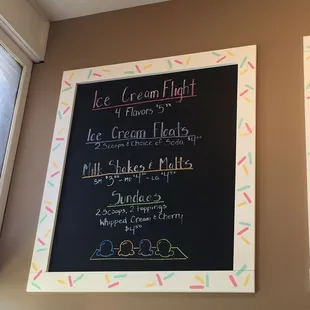 Ice Cream Flight
4 Flavors $5.00
Ice Cream Floats
2 Scoops & Choice of Soda $4.00
Milk Shakes & Malts
Sundaes
2 Scoops, 2 toppings
Whipped Cream & Cherry